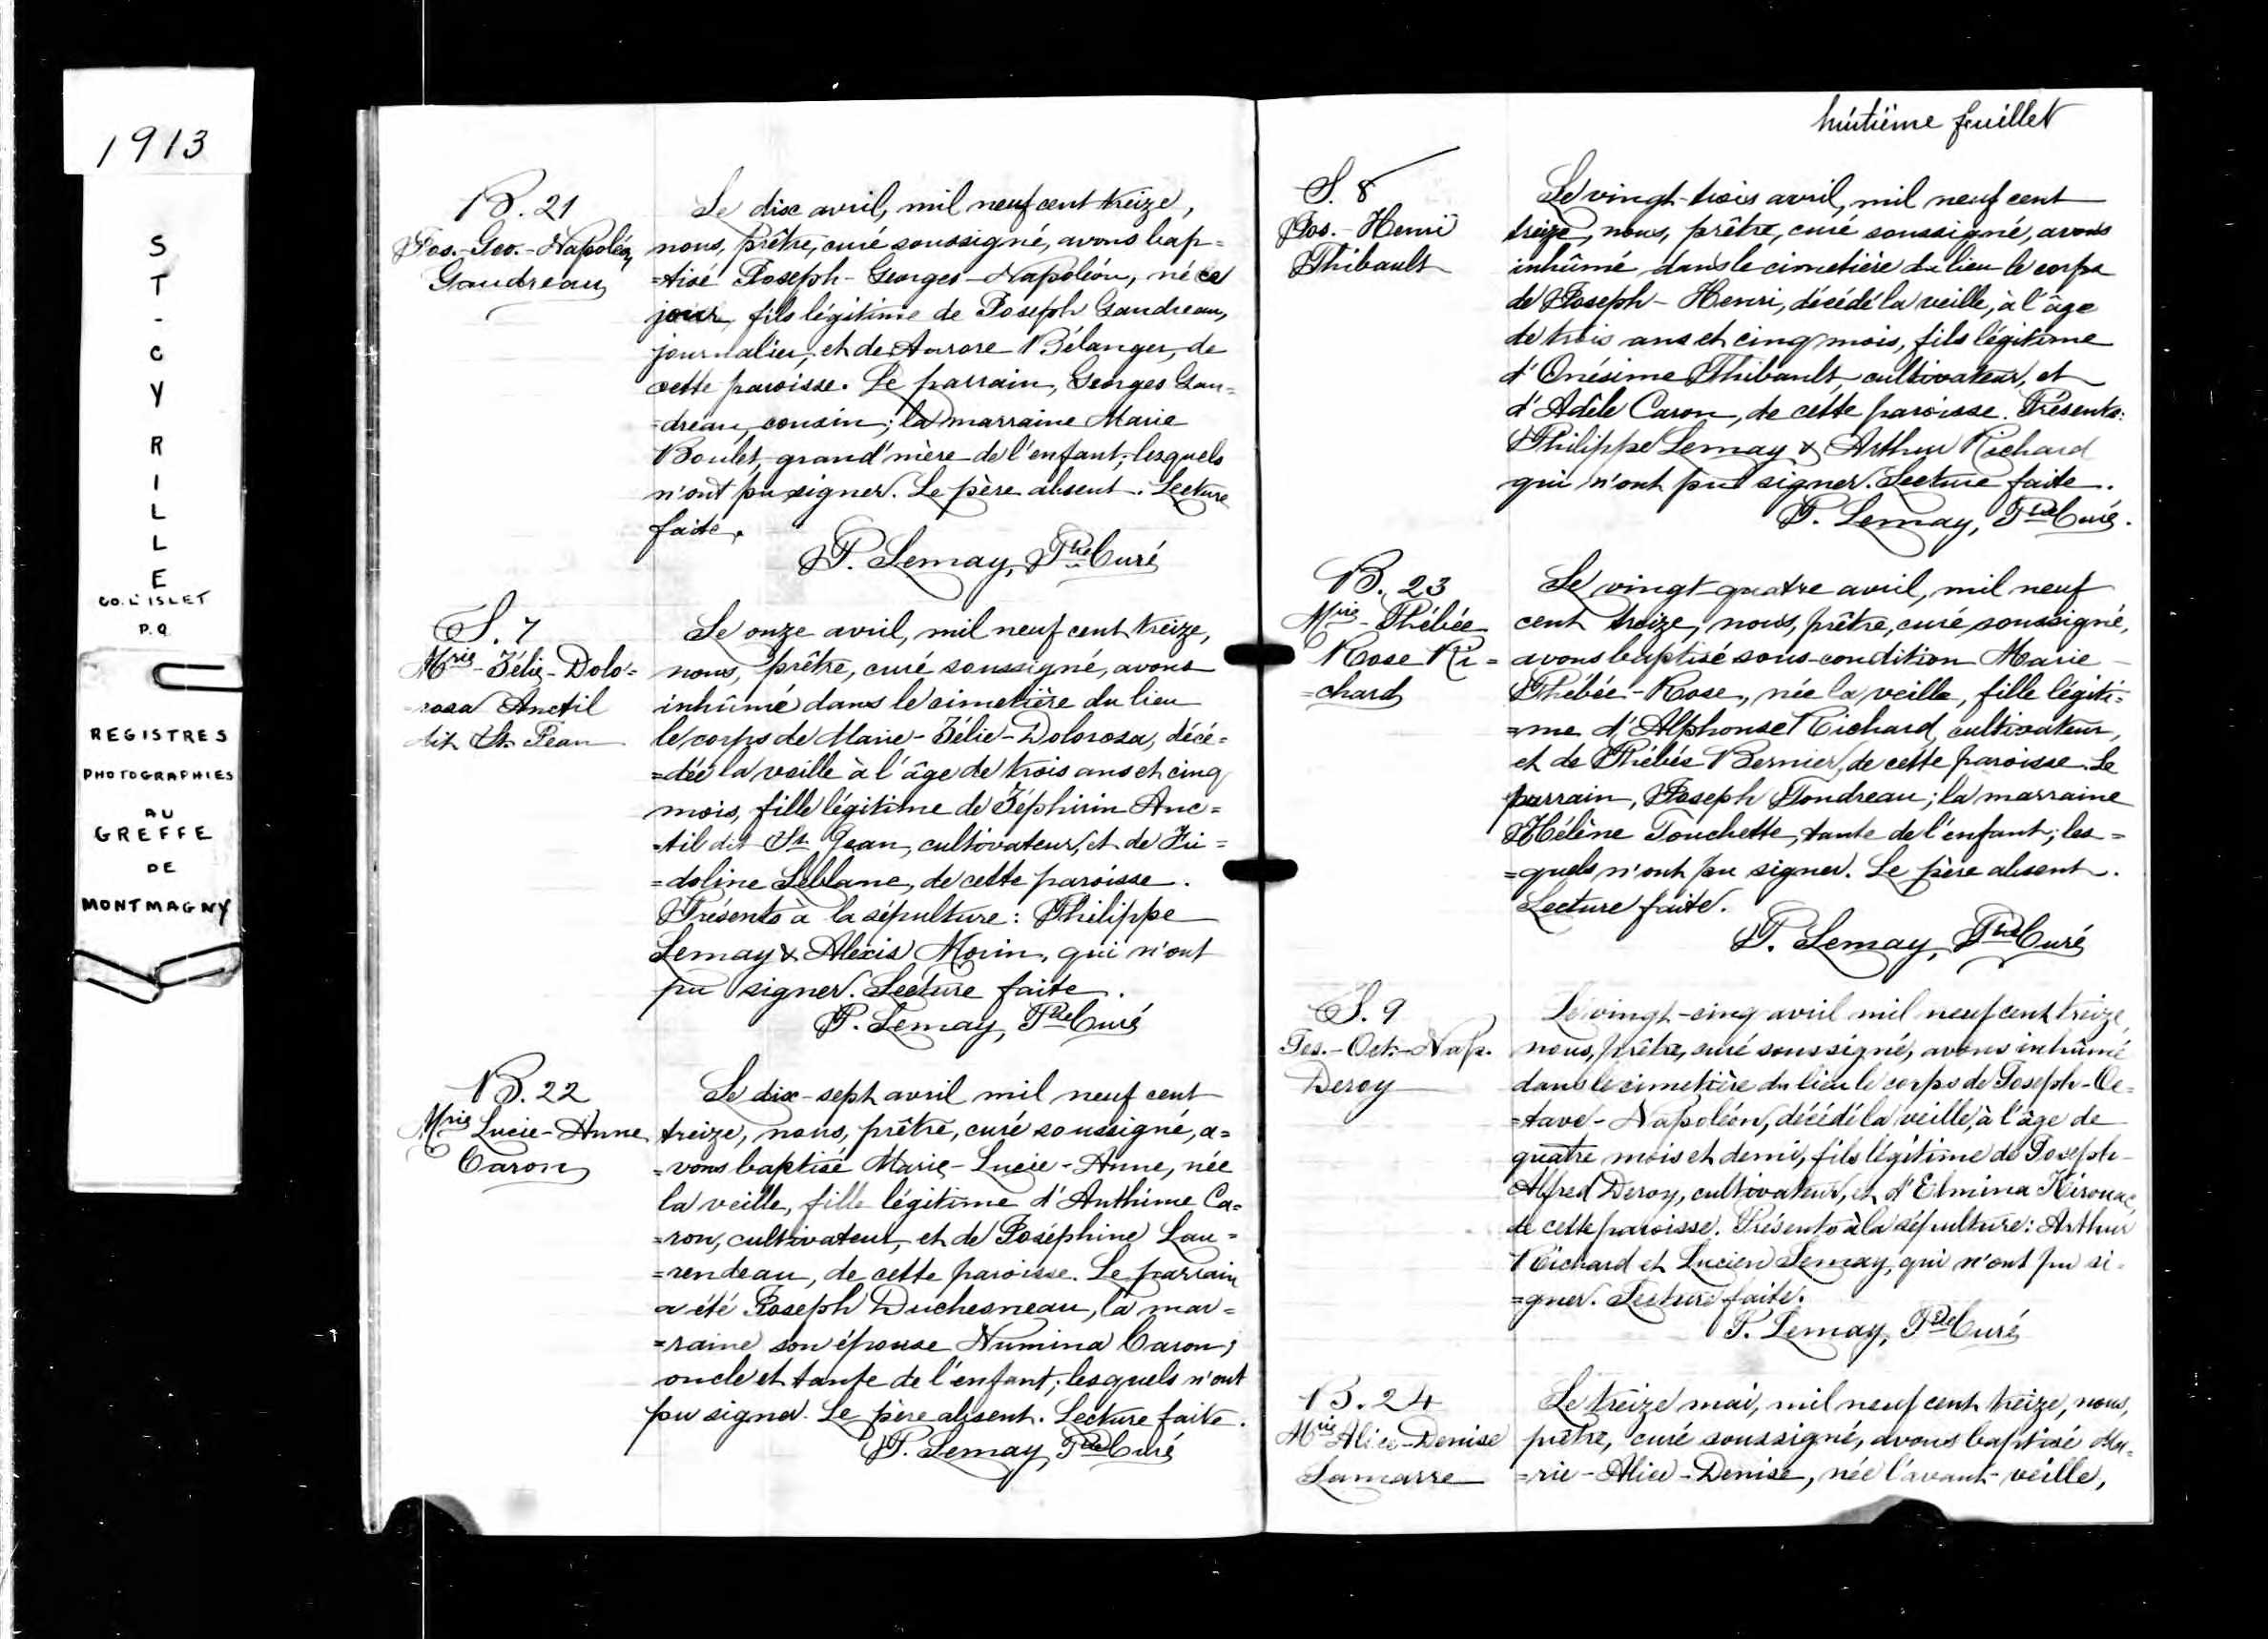 1913
ST-CYRILLE
CO. L'ISLET
P.Q
REGISTRES
PHOTOGRAPHIES
AU
GREFFE
DE
MONTMAGNY
B. 21
Jos.-Geo.-Napoléon
Gaudreau
Le dix avril, mil neuf cent treize,
nous, prêtre, curé soussigné, avons bap=
=tisé Joseph-Georges-Napoléon, né ce
jour, fils légitime de Joseph Gaudreau,
journalier, et de Aurore Bélanger, de
cette paroisse. Le parrain, Georges Gau=
=dreau, cousin; la marraine Marie
Boulet, grand'mère de l'enfant; lesquels
n'ont pu signer. Le père absent. Lecture
faite.
P. Lemay, Ptre Curé
S. 7
Mrie-Zélie-Dolo=
rosa Anctil
dit St. Jean
Le onze avril, mil neuf cent treize,
nous, prêtre, curé soussigné, avons
inhûmé dans le cimetière du lieu
le corps de Marie-Zélie-Dolorosa, décé=
=dée la veille à l'âge de trois ans et cinq
mois, fille légitime de Zéphirin Anc=
=til dit St. Jean, cultivateur, et de
=doline Leblanc, de cette paroisse.
Présents à la sépulture: Philippe
Lemay & Alexis Morin, qui n'ont
pu signer. Lecture faite.
P. Lemay, Ptre Curé
B. 22
Mrie Lucie-Anne
Caron
Le dix-sept avril mil neuf cent
treize, nous, prêtre, curé soussigné, a=
=vons baptisé Marie-Lucie-Anne, née
la veille, fille légitime d'Anthime Ca=
=ron, cultivateur, et de Joséphine Lau=
=rendeau, de cette paroisse. Le parrain
a été Joseph Duchesneau, la mar=
=raine son épouse Numina Caron,
oncle et tante de l'enfant; lesquels n'ont
pu signer. Le père absent. Lecture faite.
P. Lemay, Ptre Curé
huitième feuillet
S. 8
Jos.-Henri
Thibault
Le vingt-trois avril, mil neuf cent
treize, nous, prêtre, curé soussigné, avons
inhûmé dans le cimetière du lieu le corps
de Joseph-Henri, décédé la veille, à l'âge
de trois ans et cinq mois, fils légitime
d'Onésime Thibault, cultivateur, et
d'Adèle Caron, de cette paroisse. Présents:
Philippe Lemay & Arthur Richard
qui n'ont pu signer. Lecture faite.
P. Lemay, Ptre Curé.
B. 23
Mrie-Phébée
Rose Ri=
=chard
Le vingt-quatre avril, mil neuf
cent treize, nous, prêtre, curé soussigné,
avons baptisé sous-condition Marie-
Phébée-Rose, née la veille, fille légiti=
=me d'Alphonse Richard, cultivateur,
et de Phébée Bernier, de cette paroisse. Le
parrain, Joseph Tondreau; la marraine
Hélène Touchette, tante de l'enfant; les=
=quels n'ont pu signer. Le père absent.
Lecture faite.
P. Lemay, Ptre Curé
S. 9
Jos.-Oct.-Nap.
Deroy
Le vingt-cinq avril mil neuf cent treize,
nous, prêtre, curé soussigné, avons inhûmé
dans le cimetière du lieu le corps de Joseph-Oc=
=tave-Napoléon, décédé la veille, à l'âge de
quatre mois et demi, fils légitime de Joseph-
Alfred Deroy, cultivateur, et d'Elmina Kirouac,
de cette paroisse. Présents à la sépulture: Arthur
Richard et Lucien Lemay, qui n'ont pu si=
=gner. Lecture faite.
P. Lemay, Ptre Curé
B. 24
Mrie Alice-Denise
Lamarre
Le treize mai, mil neuf cent treize, nous,
prêtre, curé soussigné, avons baptisé Ma=
=rie-Alice-Denise, née l'avant-veille,